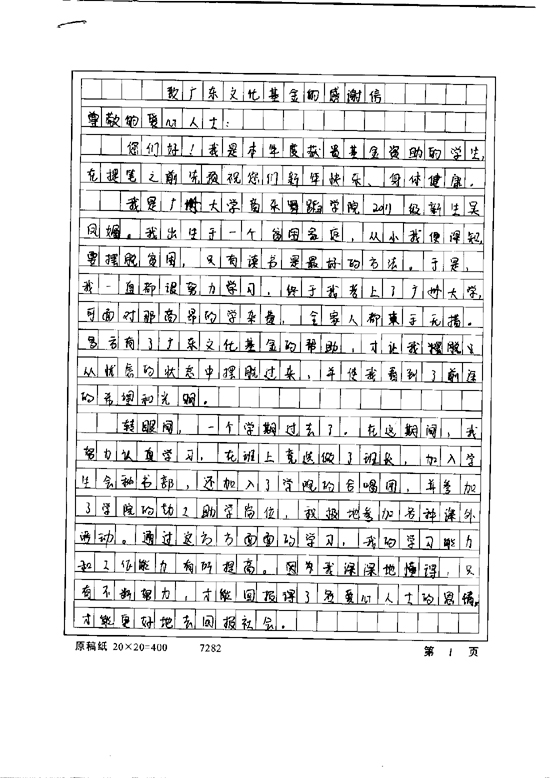 致广东文化基金的感谢信
尊敬的爱心人士：
您们好！我是本年度获得基金资助的学生，
在提笔之前先预祝您们新年快乐、身体健康。
我是广州大学音乐舞蹈学院2011级新生吴
凤媚。我出生于一个贫困家庭，从小我便深知
要摆脱贫困，只有读书是最好的方法。于是，
我一直都很努力学习，终于我考上了广州大学，
可面对那高昂的学杂费，全家人都束手无措。
有了广东文化基金的帮助，才让我摆脱
从忧虑的状态中摆脱过来，并使我看到了前途
的希望和光明。
转眼间，一个学期过去了。在这期间，我
努力认真学习，在班上竞选做了班长，加入学
生会秘书部，还加入了学院的合唱团，并参加
了学院的勤工助学岗位，积极地参加各种课外
活动。通过这方方面面的学习，我的学习能力
和工作能力有所提高。因为我深深地懂得，只
有不断努力，才能回报得了爱心人士的恩情，
才能更好地去回报社会。
原稿紙 20×20=400 7282 第 1 页